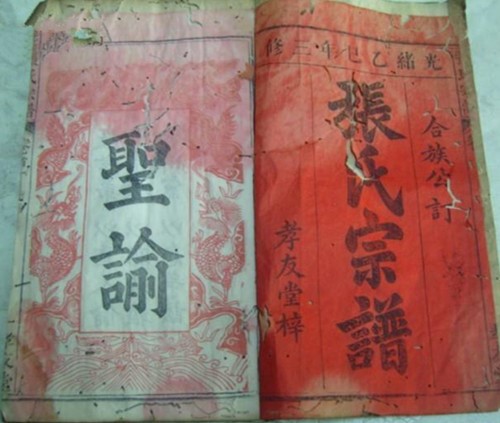 光緒乙巳年三修
合族公訂
張氏宗譜
孝友堂梓
聖諭